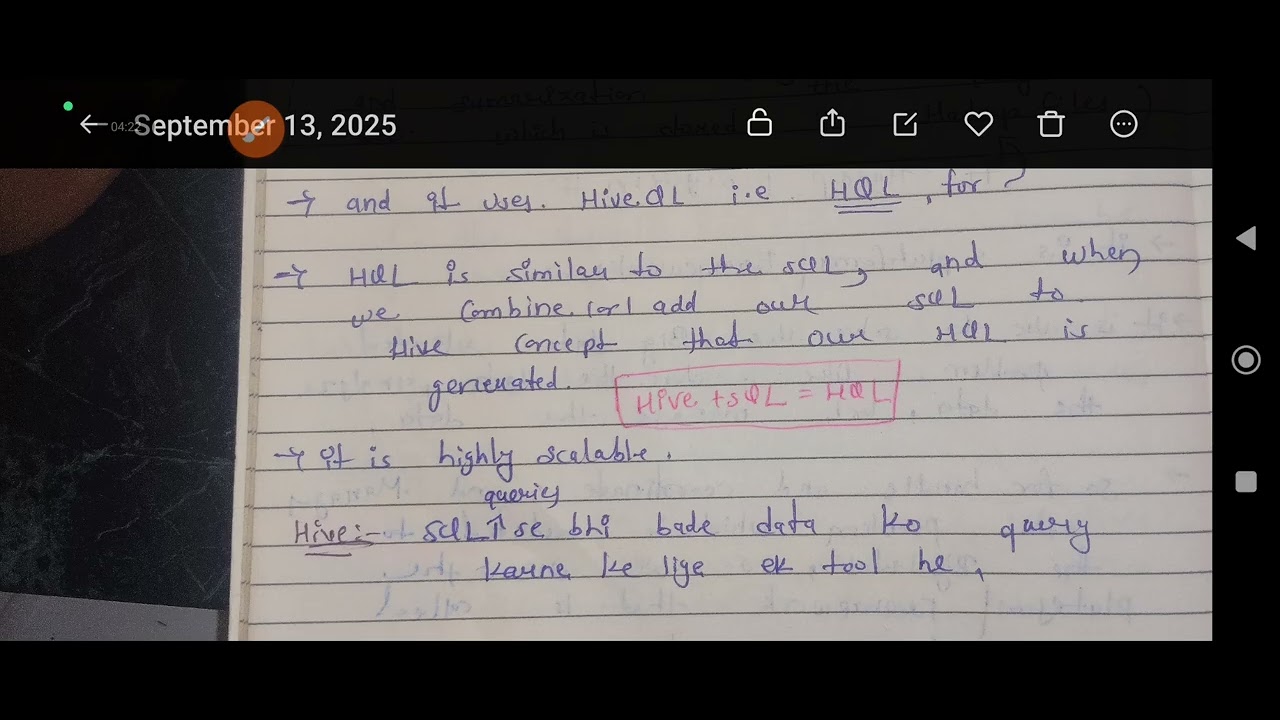 summarization the
which is stored
04:22
September 13, 2025
→ and it uses. Hive QL i.e. HQL, for
→ HQL is similar to the SQL, and when
we combine (or) add our SQL to
Hive concept that our HQL is
generated.
Hive + SQL = HQL
→ It is highly scalable.
queries
Hive:- SQL↑ se bhi bade data ko query
karne ke liye ek tool he,